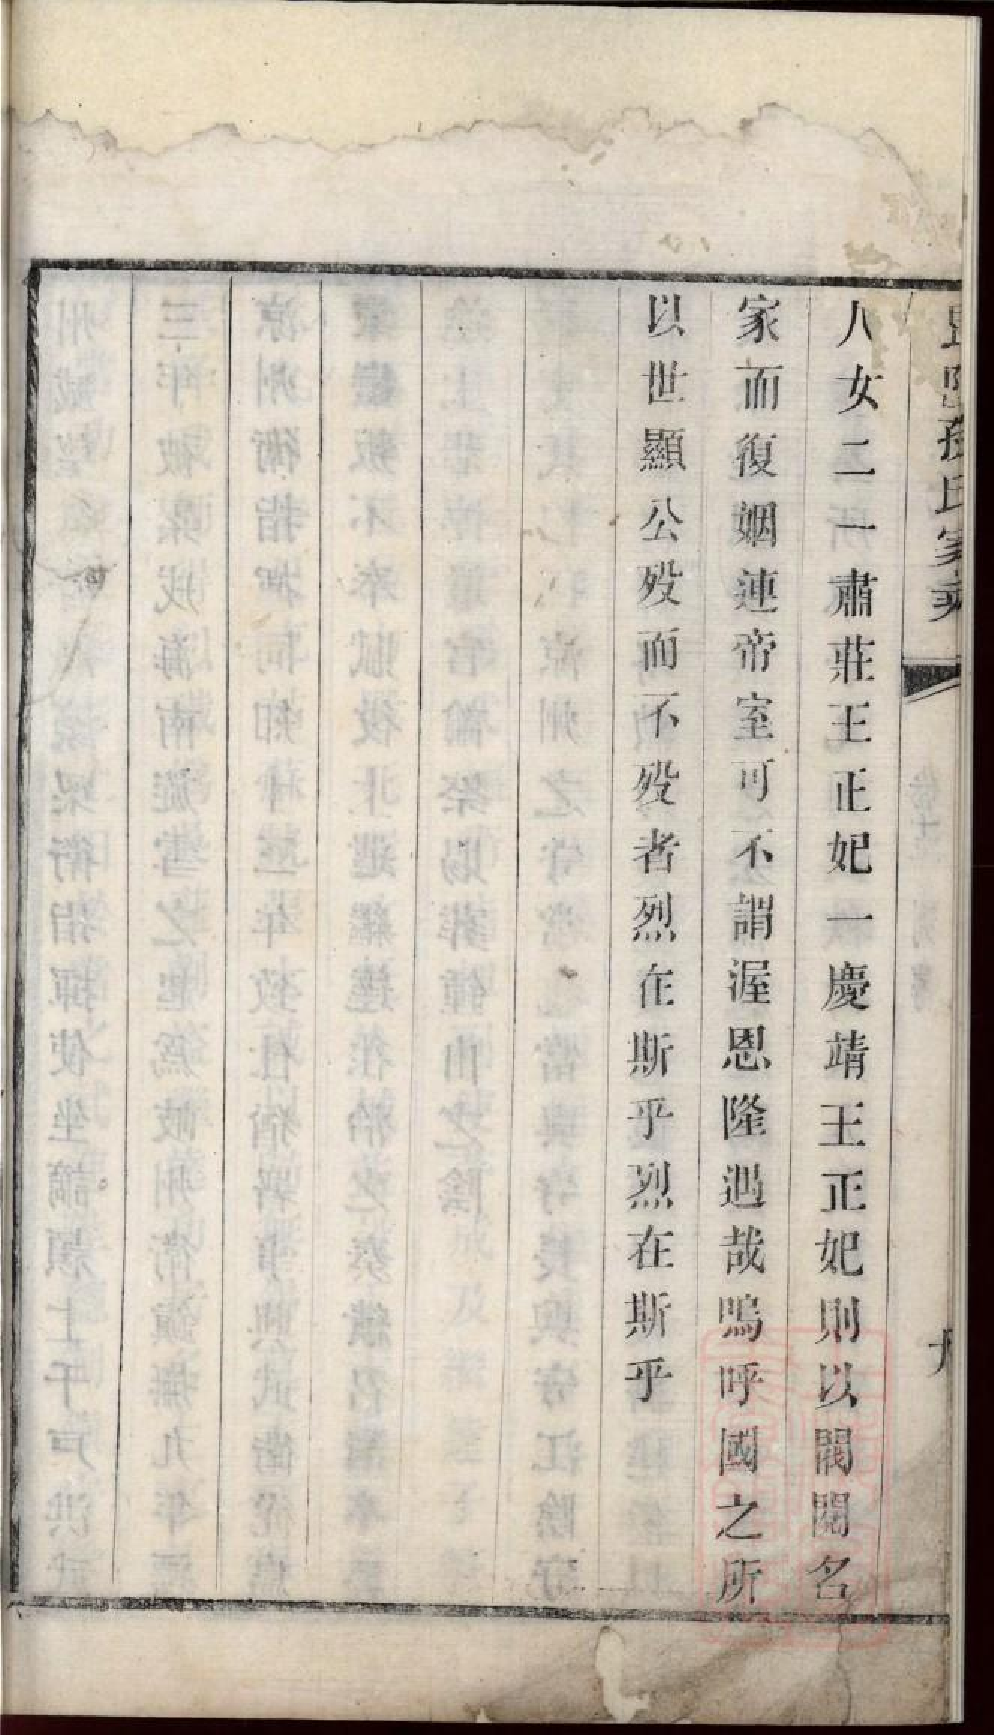 孫氏家
八女二一肅莊王正妃一慶靖王正妃則以閥閱名
家而復姻連帝室可不謂渥恩隆遇哉嗚呼國之所
以世顯公歿而不歿者烈在斯乎烈在斯乎